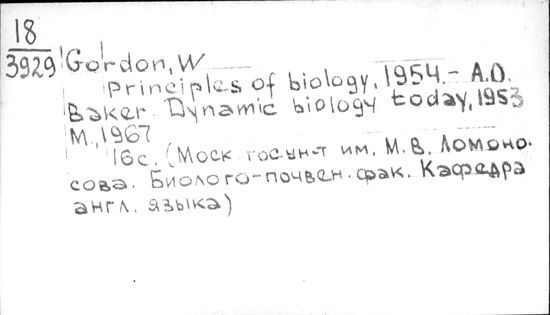 18
3929 Gordon, W
Principles of biology, 1954.- A.O.
Baker. Dynamic biology today, 1953
М., 1967
16с. (Моск гос.ун-т им. М.В. Ломоно-
сова. Биолого-почвен. фак. Кафедра
англ. языка)